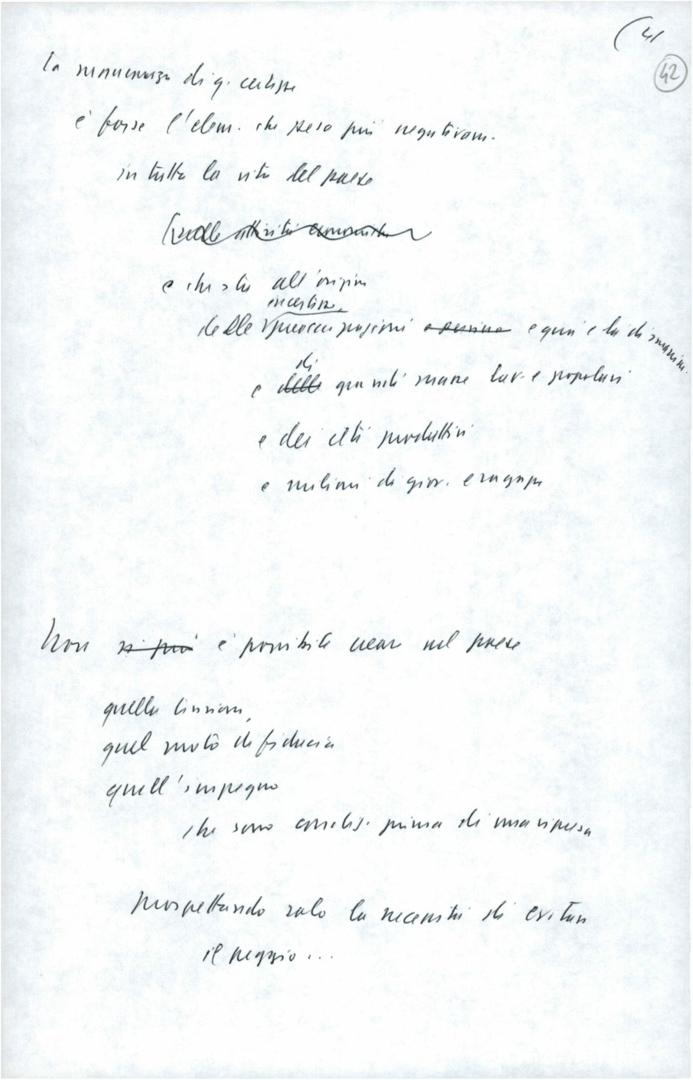 41
42
la mancanza di q. certezze
è forse l'elem. che pesa più negativam.
in tutta la vita del paese
e che sta all'origine
incertezze,
delle preoccupazioni e qui è la di
di
e delle grandi masse lav. e popolari
e dei ceti produttivi
e milioni di giov. e ragazze
Non si può è possibile creare nel paese
quella tensione,
quel moto di fiducia
quell'impegno
che sono condiz. prima di una ripresa
prospettando solo la necessità di evitare
il peggio...